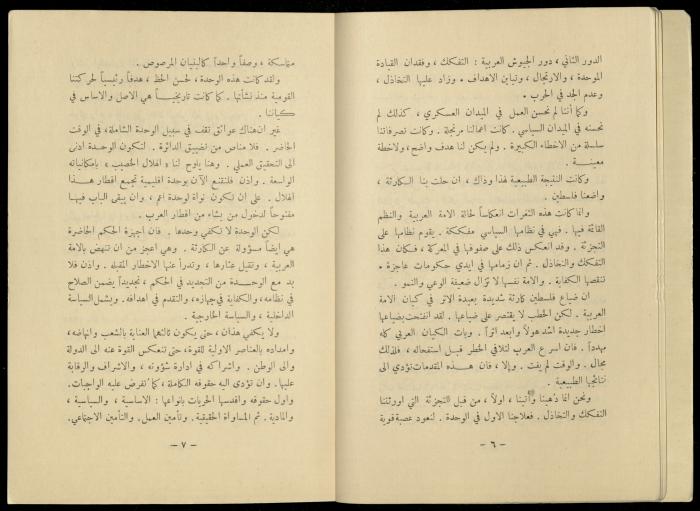 الدور الثاني، دور الجيوش العربية: التفكك، وفقدان القيادة
الموحدة، والارتجال، وتباين الاهداف. وزاد عليها التخاذل،
وعدم الجد في الحرب.
وكما أننا لم نحسن العمل في الميدان العسكري، كذلك لم
نحسنه في الميدان السياسي. كانت اعمالنا مرتجلة. وكانت تصرفاتنا
سلسلة من الاخطاء الكبيرة. ولم يكن لنا هدف واضح، ولاخطة
معينة.
وكانت النتيجة الطبيعية لهذا وذاك، ان حلت بنا الكارثة،
واضعنا فلسطين.
وانما كانت هذه الثغرات انعكاساً لحالة الامة العربية والنظم
القائمة فيها. فهي في نظامها السياسي مفككة. يقوم نظامها على
التجزئة. وقد انعكس ذلك على صفوفها في المعركة، فكان هذا
التفكك والتخاذل. ثم ان زمامها في ايدي حكومات عاجزة.
تنقصها الكفاية. والامة نفسها لا تزال ضعيفة الوعي والنمو.
ان ضياع فلسطين كارثة شديدة بعيدة الاثر في كيان الامة
العربية. لكن الخطب لا يقتصر على ضياعها. لقد انفتحت بضياعها
اخطار جديدة اشد هولاً وابعد اثراً. وبات الكيان العربي كله
مهدداً. فان اسرع العرب لتلافي الخطر قبل استفحاله، فلذلك
مجال. والوقت لم يفت. وإلا، فان هذه المقدمات تؤدي الى
نتائجها الطبيعية.
ونحن انما دُهينا وأُتينا، اولاً، من قبل التجزئة التي اورثتنا
التفكك والتخاذل. فعلاجنا الاول في الوحدة. لنعود عصبة قوية
— ٦ —
متماسكة، وصفاً واحداً كالبنيان المرصوص.
ولقد كانت هذه الوحدة، لحسن الحظ، هدفاً رئيسياً لحركتنا
القومية منذ نشأتها. كما كانت تاريخياً هي الاصل والاساس في
كياننا.
غير ان هناك عوائق تقف في سبيل الوحدة الشاملة، في الوقت
الحاضر. فلا مناص من تضييق الدائرة. لتكون الوحدة ادنى
الى التحقيق العملي. وهنا يلوح لنا «الهلال الخصيب» بامكانياته
الواسعة. واذن فلنقتنع الآن بوحدة اقليمية تجمع اقطار هذا
الهلال. على ان تكون نواة لوحدة اعم، وان يبقى الباب فيها
مفتوحاً لدخول من يشاء من اقطار العرب.
لكن الوحدة لا تكفي وحدها. فان اجهزة الحكم الحاضرة
هي ايضاً مسؤولة عن الكارثة. وهي اعجز من ان تنهض بالامة
العربية، وتقيل عثارها، وتدرأ عنها الاخطار المقبلة. واذن فلا
بد مع الوحدة من التجديد في الحكم، تجديداً يضمن الصلاح
في نظامه، والكفاية في جهازه، والتقدم في اهدافه. ويشمل السياسة
الداخلية، والسياسة الخارجية.
ولا يكفي هذان، حتى يكون ثالثهما العناية بالشعب وانهاضه،
وامداده بالعناصر الاولية للقوة، حتى تنعكس القوة عنه الى الدولة
والى الوطن. واشراكه في ادارة شؤونه، والاشراف والرقابة
عليها. وان تؤدى اليه حقوقه الكاملة، كما تفرض عليه الواجبات.
واول حقوقه واقدسها الحريات بانواعها: الاساسية، والسياسية،
والمادية. ثم المساواة الحقيقية. وتأمين العمل. والتأمين الاجتماعي.
— ٧ —